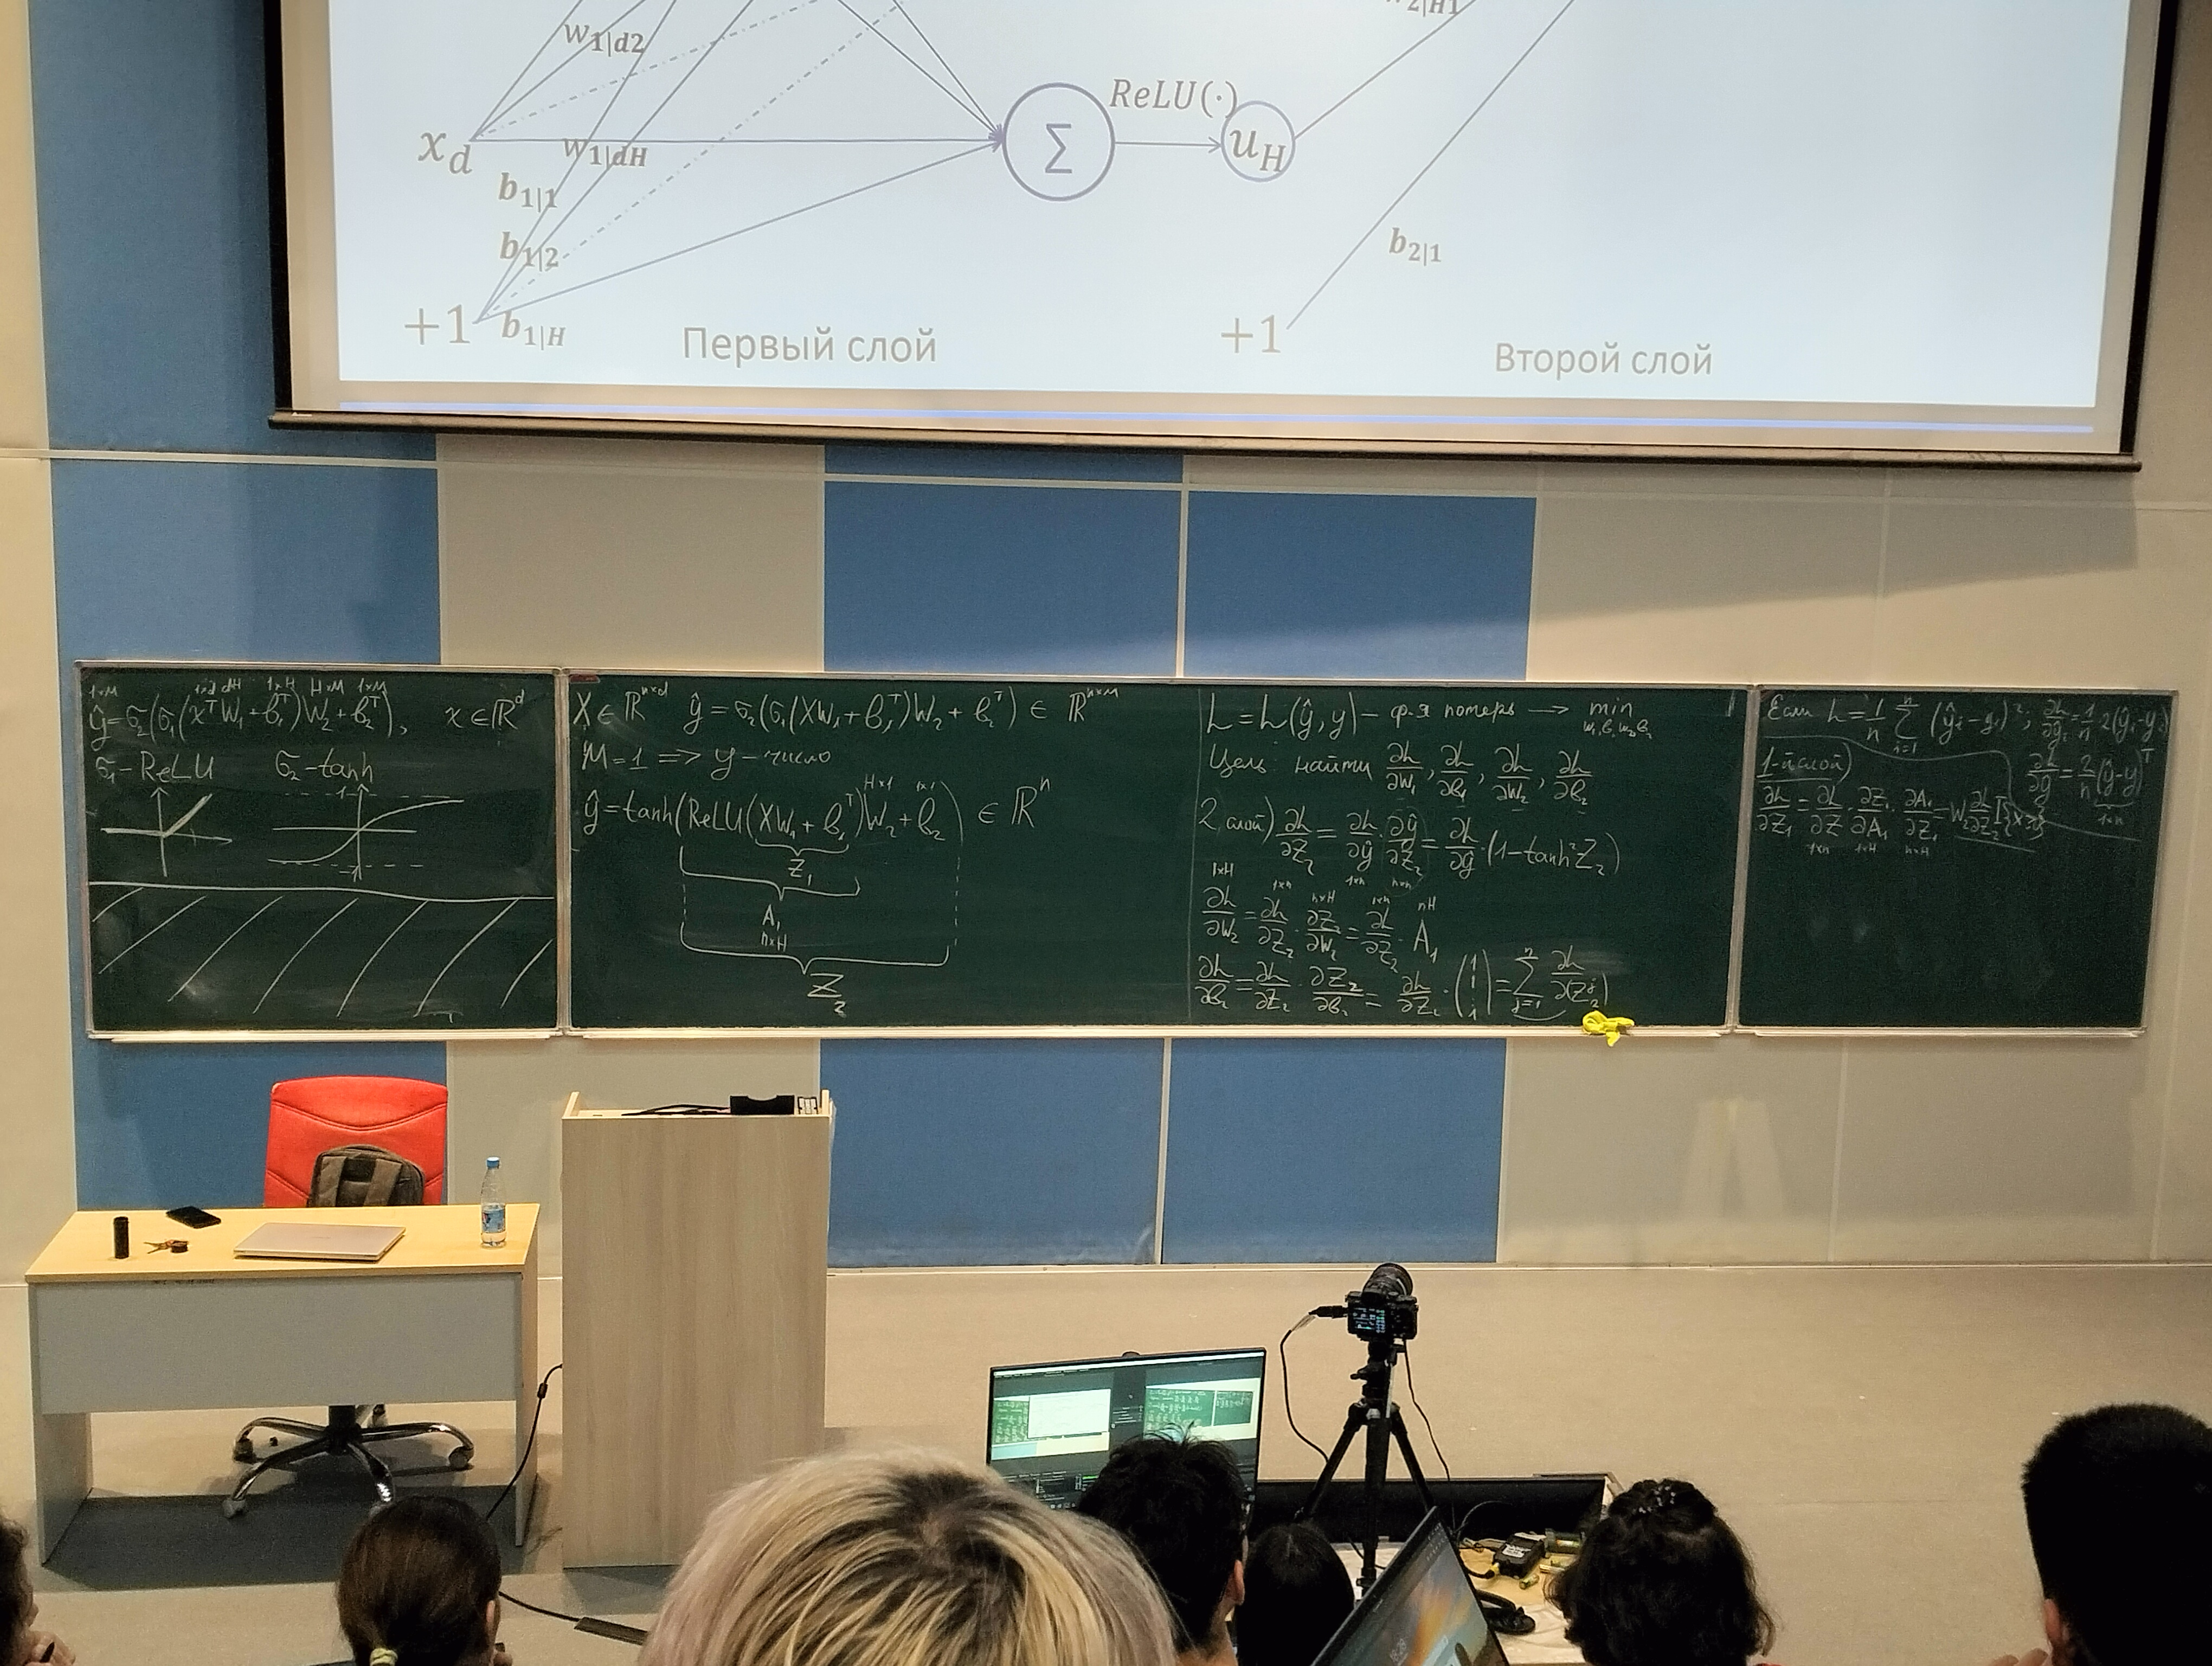 w₁|d2
w₂|H1
ReLU(·)
x_d
w₁|dH
Σ
u_H
b₁|1
b₁|2
b₂|1
+1
b₁|H
+1
Первый слой
Второй слой
1×M 1×d dH 1×H H×M 1×M
ŷ=σ₂(σ₁(xᵀW₁+b₁ᵀ)W₂+b₂ᵀ), x∈ℝᵈ
σ₁-ReLU σ₂-tanh
1
-1
X∈ℝⁿˣᵈ ŷ=σ₂(σ₁(XW₁+b₁ᵀ)W₂+b₂ᵀ)∈ℝⁿˣᴹ
M=1 => y-число
H×1 1×1
ŷ=tanh(ReLU(XW₁+b₁ᵀ)W₂+b₂)∈ℝⁿ
Z₁
A₁
n×H
Z₂
L=L(ŷ,y)-ф-я потерь → min
W₁,b₁,W₂,b₂
Цель: найти ∂L/∂W₁, ∂L/∂b₁, ∂L/∂W₂, ∂L/∂b₂
2 слой) ∂L/∂Z₂=∂L/∂ŷ·∂ŷ/∂Z₂=∂L/∂ŷ·(1-tanh²Z₂)
1×n n×n
1×H 1×n n×H 1×n nH
∂L/∂W₂=∂L/∂Z₂·∂Z₂/∂W₂=∂L/∂Z₂·A₁
∂L/∂b₂=∂L/∂Z₂·∂Z₂/∂b₂=∂L/∂Z₂·(1 1 ⋮ 1)=∑ⁿⱼ₌₁ ∂L/∂(Z₂ʲ)
Если L=1/n ∑ⁿᵢ₌₁ (ŷᵢ-yᵢ)²; ∂L/∂ŷᵢ=1/n 2(ŷᵢ-yᵢ)
∂L/∂ŷ=2/n(ŷ-y)ᵀ
1×n
1-й слой)
∂L/∂Z₁=∂L/∂Z₂·∂Z₂/∂A₁·∂A₁/∂Z₁=W₂∂L/∂Z₂ I{
1×n 1×H n×H